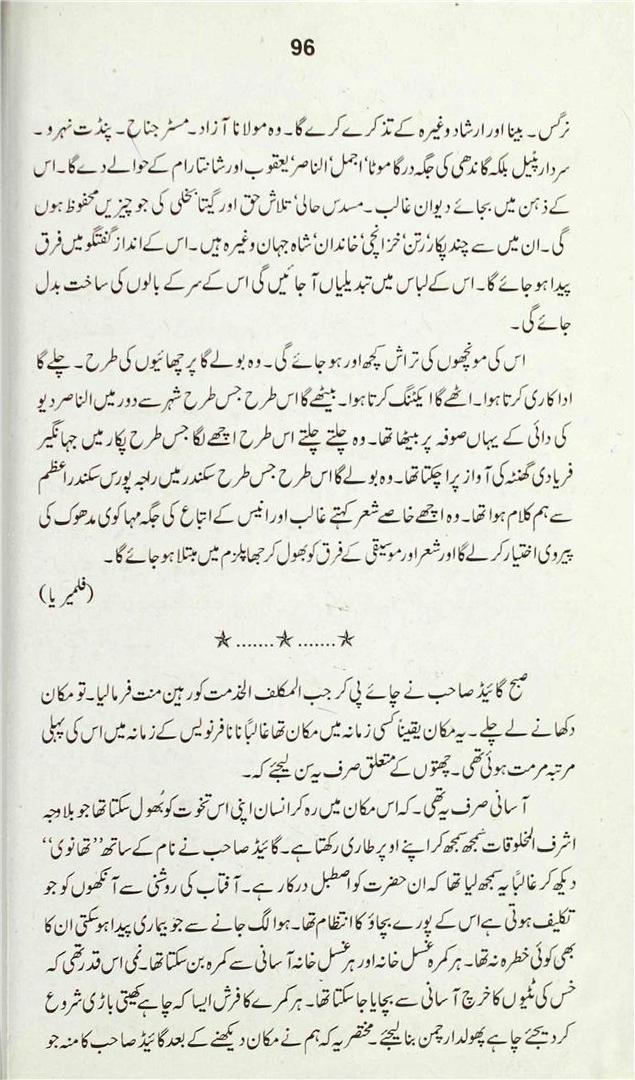 96
نرگس۔ بینا اور ارشاد وغیرہ کے تذکرے کرے گا۔ وہ مولانا آزاد۔ مسٹر جناح۔ پنڈت نہرو۔
سردار پٹیل بلکہ گاندھی کی جگہ درگا موٹا‘ اجمل‘ الناصر‘ یعقوب اور شانتا رام کے حوالے دے گا۔ اس
کے ذہن میں بجائے دیوان غالب۔ مسدس حالی‘ تلاش حق اور گیتا بخلی کی جو چیزیں محفوظ ہوں
گی۔ ان میں سے چند پکار‘ رتن‘ خزانچی‘ خاندان‘ شاہ جہان وغیرہ ہیں۔ اس کے انداز گفتگو میں فرق
پیدا ہو جائے گا۔ اس کے لباس میں تبدیلیاں آ جائیں گی اس کے سر کے بالوں کی ساخت بدل
جائے گی۔
اس کی مونچھوں کی تراش کچھ اور ہو جائے گی۔ وہ بولے گا پرچھائیوں کی طرح۔ چلے گا
اداکاری کرتا ہوا۔ اٹھے گا ایکٹنگ کرتا ہوا۔ بیٹھے گا اس طرح جس طرح شہر سے دور میں الناصر دیو
کی دائی کے یہاں صوفہ پر بیٹھا تھا۔ وہ چلتے چلتے اس طرح اچھے لگا جس طرح پکار میں جہانگیر
فریادی گھنٹہ کی آواز پر اچکتا تھا۔ وہ بولے گا اس طرح جس طرح سکندر میں راجہ پورس سکندر اعظم
سے ہم کلام ہوا تھا۔ وہ اچھے خاصے شعر کہتے غالب اور انیس کے اتباع کی جگہ مہا کوی مدھوک کی
پیروی اختیار کرلے گا اور شعر اور موسیقی کے فرق کو بھول کر جھاپلزم میں مبتلا ہو جائے گا۔
(فلمیریا)
★.......★.......★
صبح گائیڈ صاحب نے چائے پی کر جب المکلف الخدمت کو رہین منت فرما لیا۔ تو مکان
دکھانے لے چلے۔ یہ مکان یقیناً کسی زمانہ میں مکان تھا غالباً نانا فرنویس کے زمانہ میں اس کی پہلی
مرتبہ مرمت ہوئی تھی۔ چھتوں کے متعلق صرف یہ سن لیجئے کہ۔
آسانی صرف یہ تھی۔ کہ اس مکان میں رہ کر انسان اپنی اس نخوت کو بھول سکتا تھا جو بلاوجہ
اشرف المخلوقات سمجھ سمجھ کر اپنے اوپر طاری رکھتا ہے۔ گائیڈ صاحب نے نام کے ساتھ ”تھانوی“
دیکھ کر غالباً یہ سمجھ لیا تھا کہ ان حضرت کو اصطبل درکار ہے۔ آفتاب کی روشنی سے آنکھوں کو جو
تکلیف ہوتی ہے اس کے پورے بچاؤ کا انتظام تھا۔ ہوا لگ جانے سے جو بیماری پیدا ہو سکتی ان کا
بھی کوئی خطرہ نہ تھا۔ ہر کمرہ غسل خانہ اور ہر غسل خانہ آسانی سے کمرہ بن سکتا تھا۔ نمی اس قدر تھی کہ
خس کی ٹٹیوں کا خرچ آسانی سے بچایا جا سکتا تھا۔ ہر کمرے کا فرش ایسا کہ چاہے کھیتی باڑی شروع
کر دیجئے چاہے پھولدار چمن بنا لیجئے۔ مختصر یہ کہ ہم نے مکان دیکھنے کے بعد گائیڈ صاحب کا منہ جو